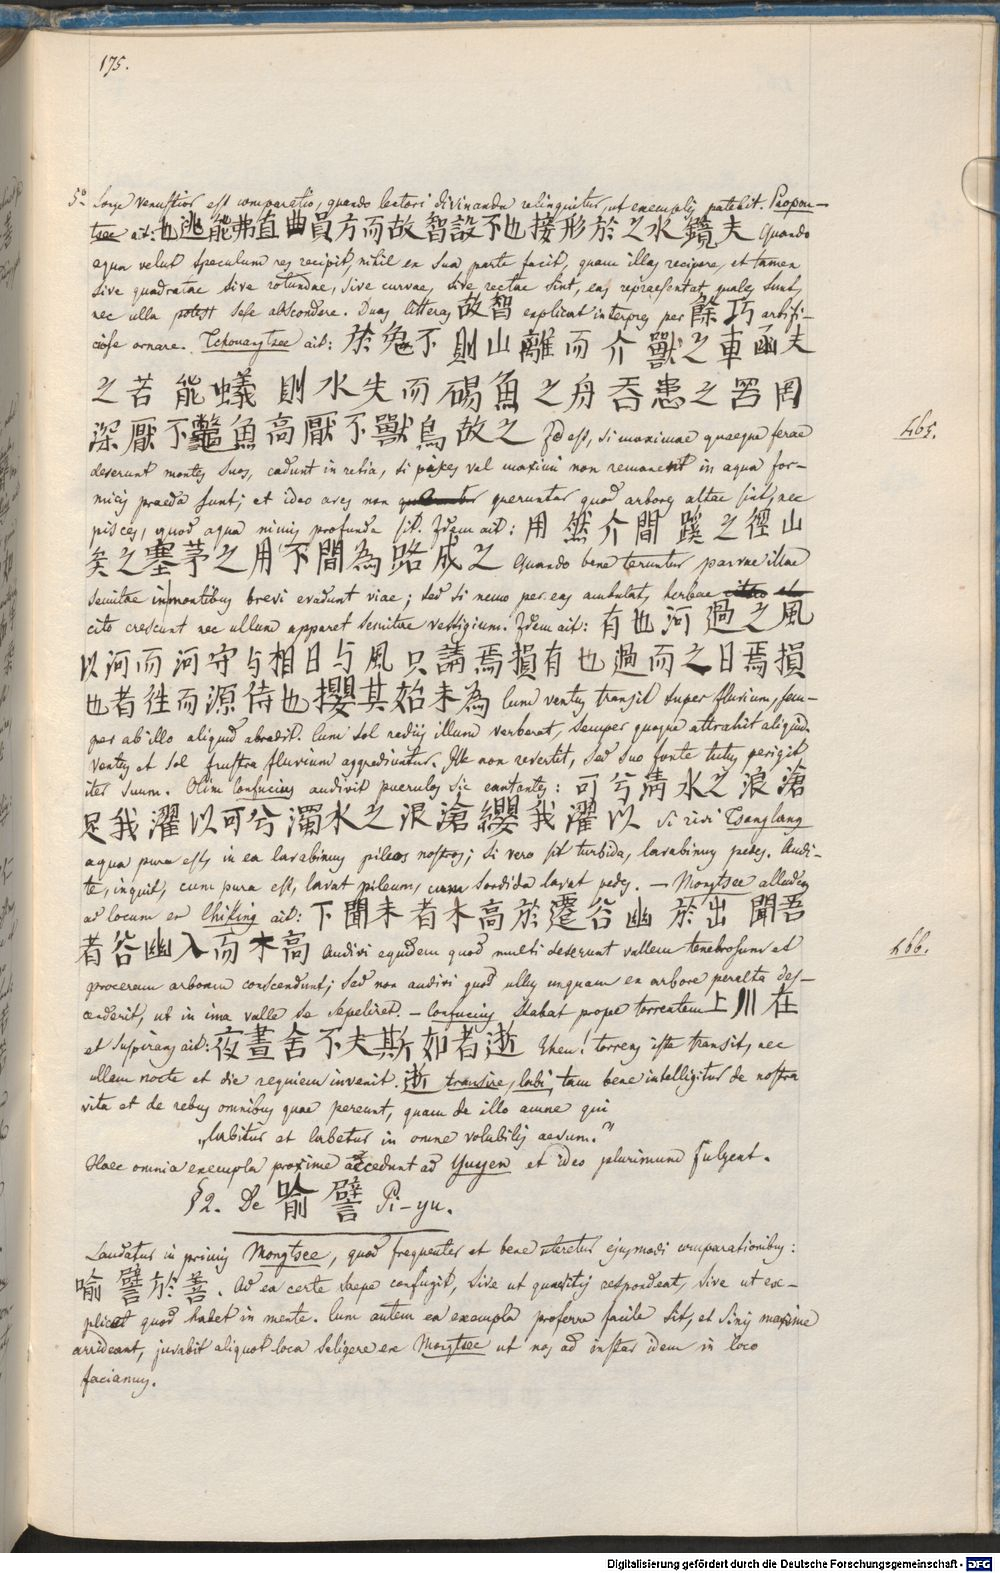 175.
5º Longe venustior est comparatio, quando lectori divinanda relinquitur, ut exemplis patebit. Hoaynan-
tsee ait: 夫鏡水之於形接也不設智故而方員曲直弗能逃也 Quando
aqua velut speculum res recipit, nihil ex sua parte facit, quam illas recipere, et tamen
sive quadratae sive rotundae, sive curvae, sive rectae sint, eas repraesentat quales sunt,
nec ulla potest sese abscondere. Duas litteras 智故 explicat interpres per 巧餘 artifi-
ciose ornare. Tchouangtsee ait: 夫函車之獸介而離山則不免於
罔罟之患吞舟之魚碭而失水則蟻能苦之
之故鳥獸不厭高魚鼈不厭深 Id est, si maximae quaeque ferae
465.
deserunt montes suos, cadunt in retia, si pisces vel maximi non remanent in aqua for-
micis praeda sunt; et ideo aves non queruntur quod arbores altae sint, nec
pisces, quod aqua nimis profunda sit. Idem ait: 山徑之蹊間介然用
之成路為間不用之茅塞之矣 Quando bene teruntur parvae illae
semitae in montibus brevi evadunt viae; sed si nemo per eas ambulat, herbae
cito crescunt nec ullum apparet semitae vestigium. Idem ait: 風之過河也有
損焉日之而過也有損焉請只風与日相守河而河以
為未始其攖也恃源而往者也 Cum ventus transit super fluvium, sem-
per ab illo aliquid abradit. Cum sol radiis illum verberat, semper quoque attrahit aliquid.
Ventus et sol frustra fluvium aggrediuntur. Ille non revertit, sed suo fonte tutus perigit
iter suum. Olim Confucius audivit puerulos sic cantantes: 滄浪之水清兮可
以濯我纓滄浪之水濁兮可以濯我足 Si rivi Tsanglang
aqua pura est, in ea lavabimus pileos nostros; si vero sit turbida, lavabimus pedes. Audi-
te, inquit, cum pura est, lavat pileum, cum sordida lavat pedes. — Mengtsee alludens
ad locum ex Chiking ait: 吾聞出於幽谷遷於高木者未聞下
高木而入幽谷者 Audivi equidem quod multi deserunt vallem tenebrosam et
466.
proceram arborem conscendunt; sed non audivi quod ullus unquam ex arbore peralta des-
cenderit, ut in ima valle se sepeliret. — Confucius stabat prope torrentem 在川上
et suspirans ait: 逝者如斯夫不舍晝夜 Eheu! torrens iste transit, nec
ullam nocte et die requiem invenit. 逝 transire, labi, tam bene intelligitur de nostra
vita et de rebus omnibus quae pereunt, quam de illo amne qui
„labitur et labetur in omne volubilis aevum."
Haec omnia exempla proxime accedunt ad Yuyen et ideo plurimum fulgent.
§ 2. De 譬喻 Pi-yu.
Laudatur in primis Mengtsee, quod frequenter et bene uteretur ejusmodi comparationibus:
善於譬喻. Ad ea certe saepe confugit, sive ut quaesitis respondeat, sive ut ex-
plicet quod habet in mente. Cum autem ea exempla proferre facile sit, et Sinis maxime
arrideant, juvabit aliquot loca seligere ex Mengtsee ut nos ad instar idem in loco
faciamus.
Digitalisierung gefördert durch die Deutsche Forschungsgemeinschaft - DFG